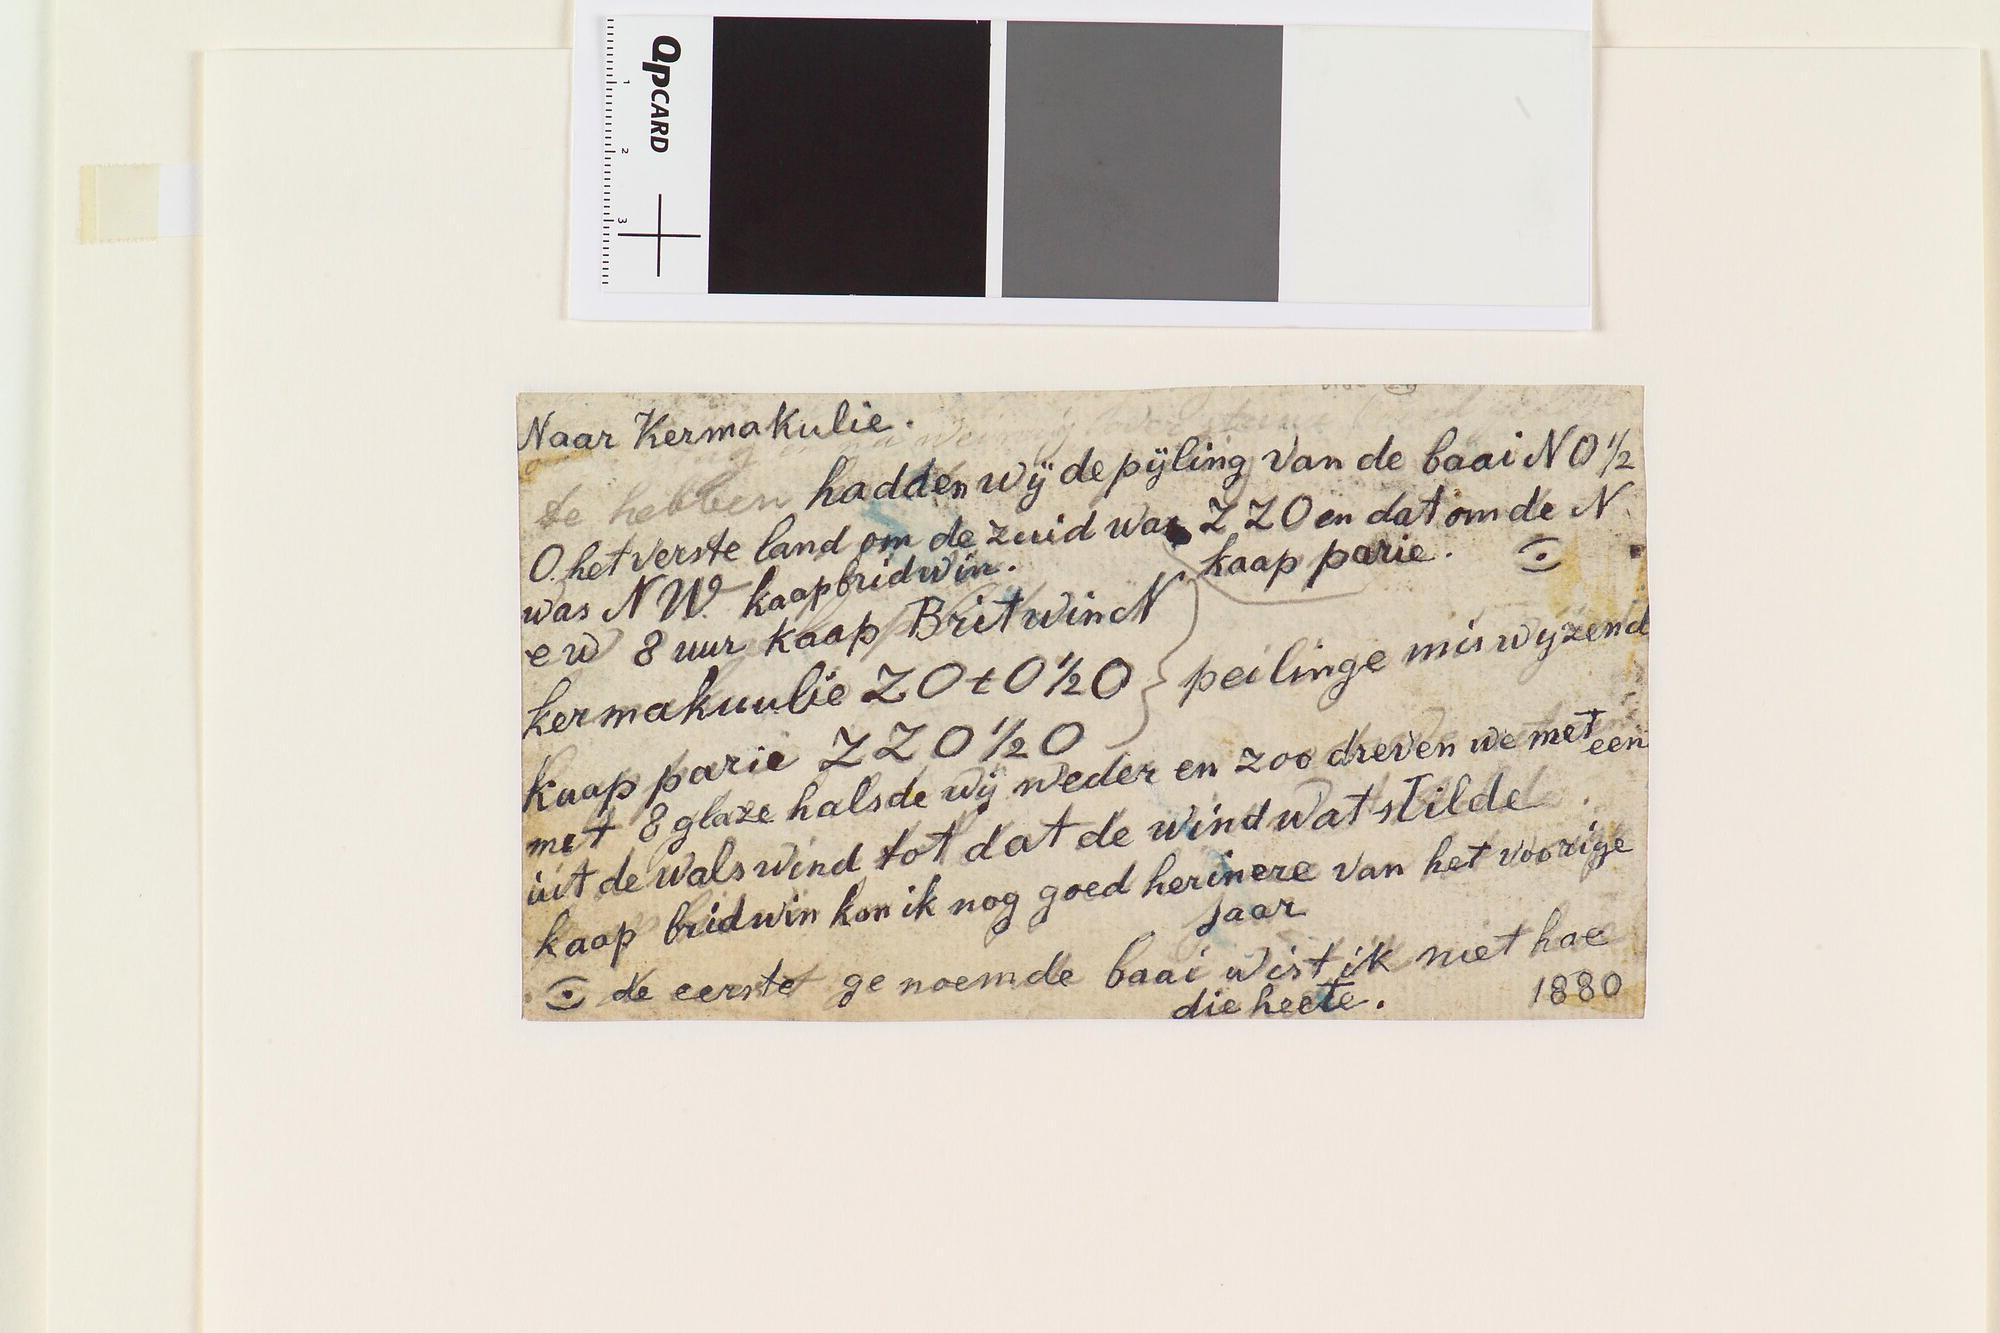 QPCARD
1
2
3
Naar Kermakulie.
te hebben hadden wij de pijling van de baai NO 1/2
O. het verste land om de zuid was ZZO en dat om de N.
was NW. kaap bridwin. kaap parie.
ew 8 uur kaap Britwin N
kermakuulie ZOtO 1/2 O peilinge miswijzend
kaap parie ZZO 1/2 O
met 8 glaze halsde wij weder en zoo dreven we met een
uit de wals wind tot dat de wind wat stilde
kaap bridwin kon ik nog goed herinere van het voorige
jaar
de eerste genoemde baai wist ik niet hoe
die heete.
1880